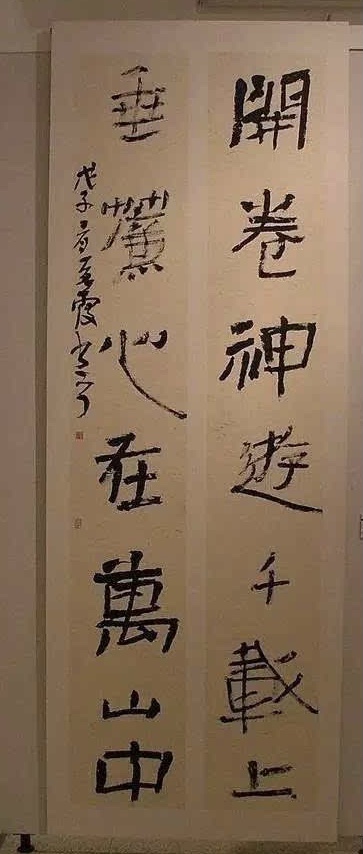 開卷神遊千載上
垂簾心在萬山中
戊子
霞